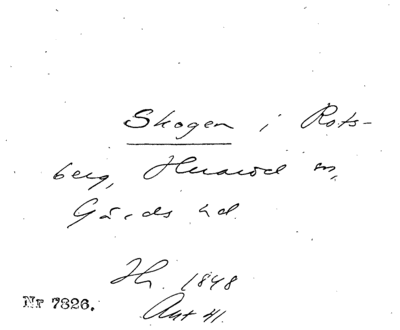 Skogen i Rots-
berg, Huaröd sn,
Gärds hd.
Hr. 1848
Akt 41.
Nr 7326.